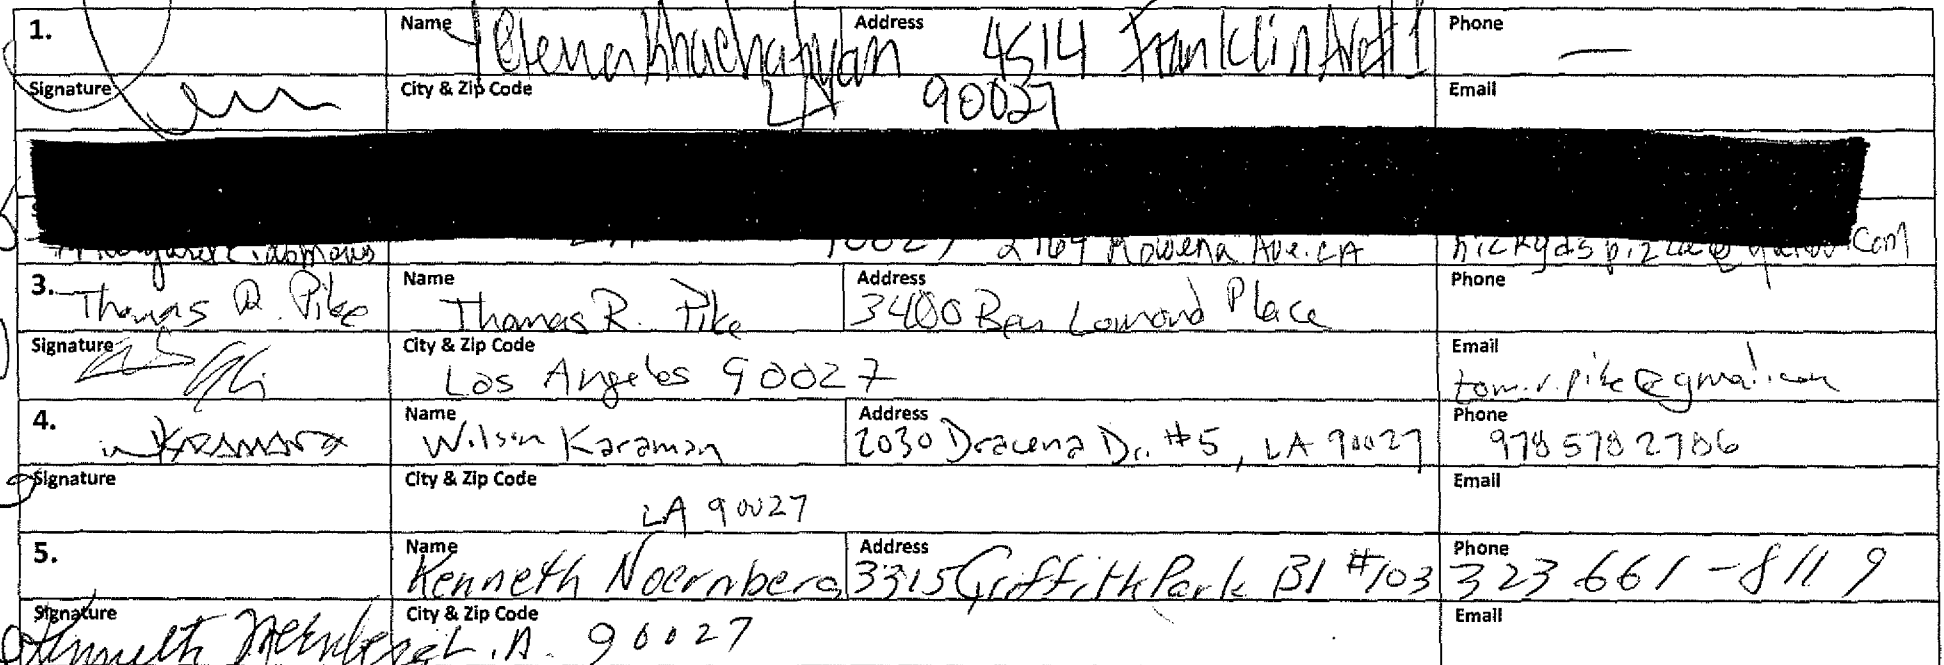 1. Name Khachatryan Address 4514 Franklin Ave #1 Phone —
Signature City & Zip Code LA 90027 Email
90027 2764 Rowena Ave. LA
3. Thomas R. Pike Name Thomas R. Pike Address 3400 Ben Lomond Place Phone
Signature City & Zip Code Los Angeles 90027 Email tom.r.pike@gmail.com
4. Name Wilson Karaman Address 2030 Dracena Dr. #5, LA 90027 Phone 978 578 2786
Signature City & Zip Code LA 90027 Email
5. Name Kenneth Noernberg Address 3315 Griffith Park Bl #103 Phone 323 661-8119
Signature Kenneth Noernberg City & Zip Code L.A. 90027 Email